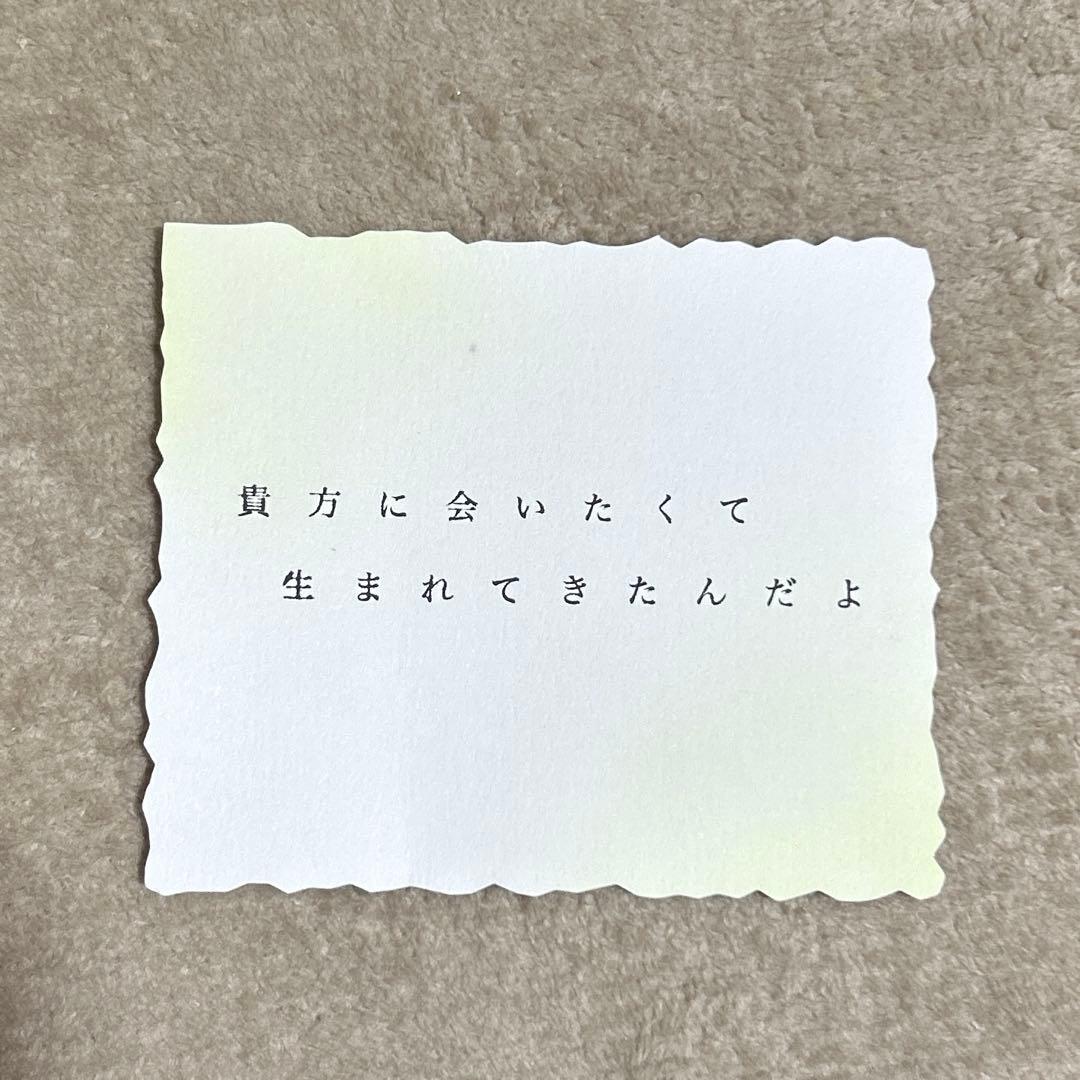 貴方に会いたくて
生まれてきたんだよ